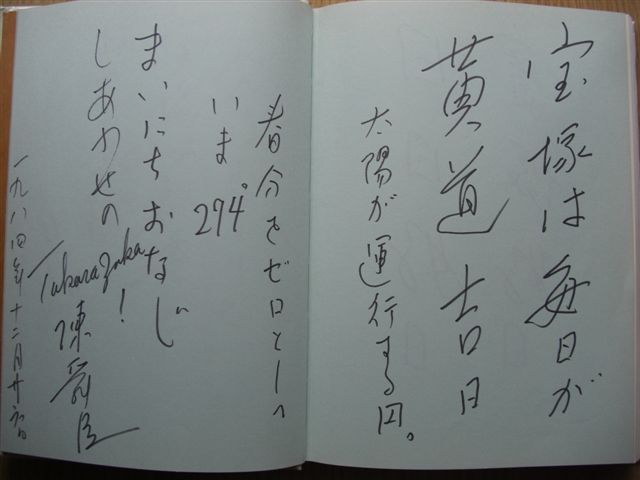 宝塚は毎日が
黄道吉日
太陽が運行する円。
春分をゼロとして
いま294°
まいにちおなじ
しあわせの
Takarazuka!
陳舜臣
一九八四年十二月廿